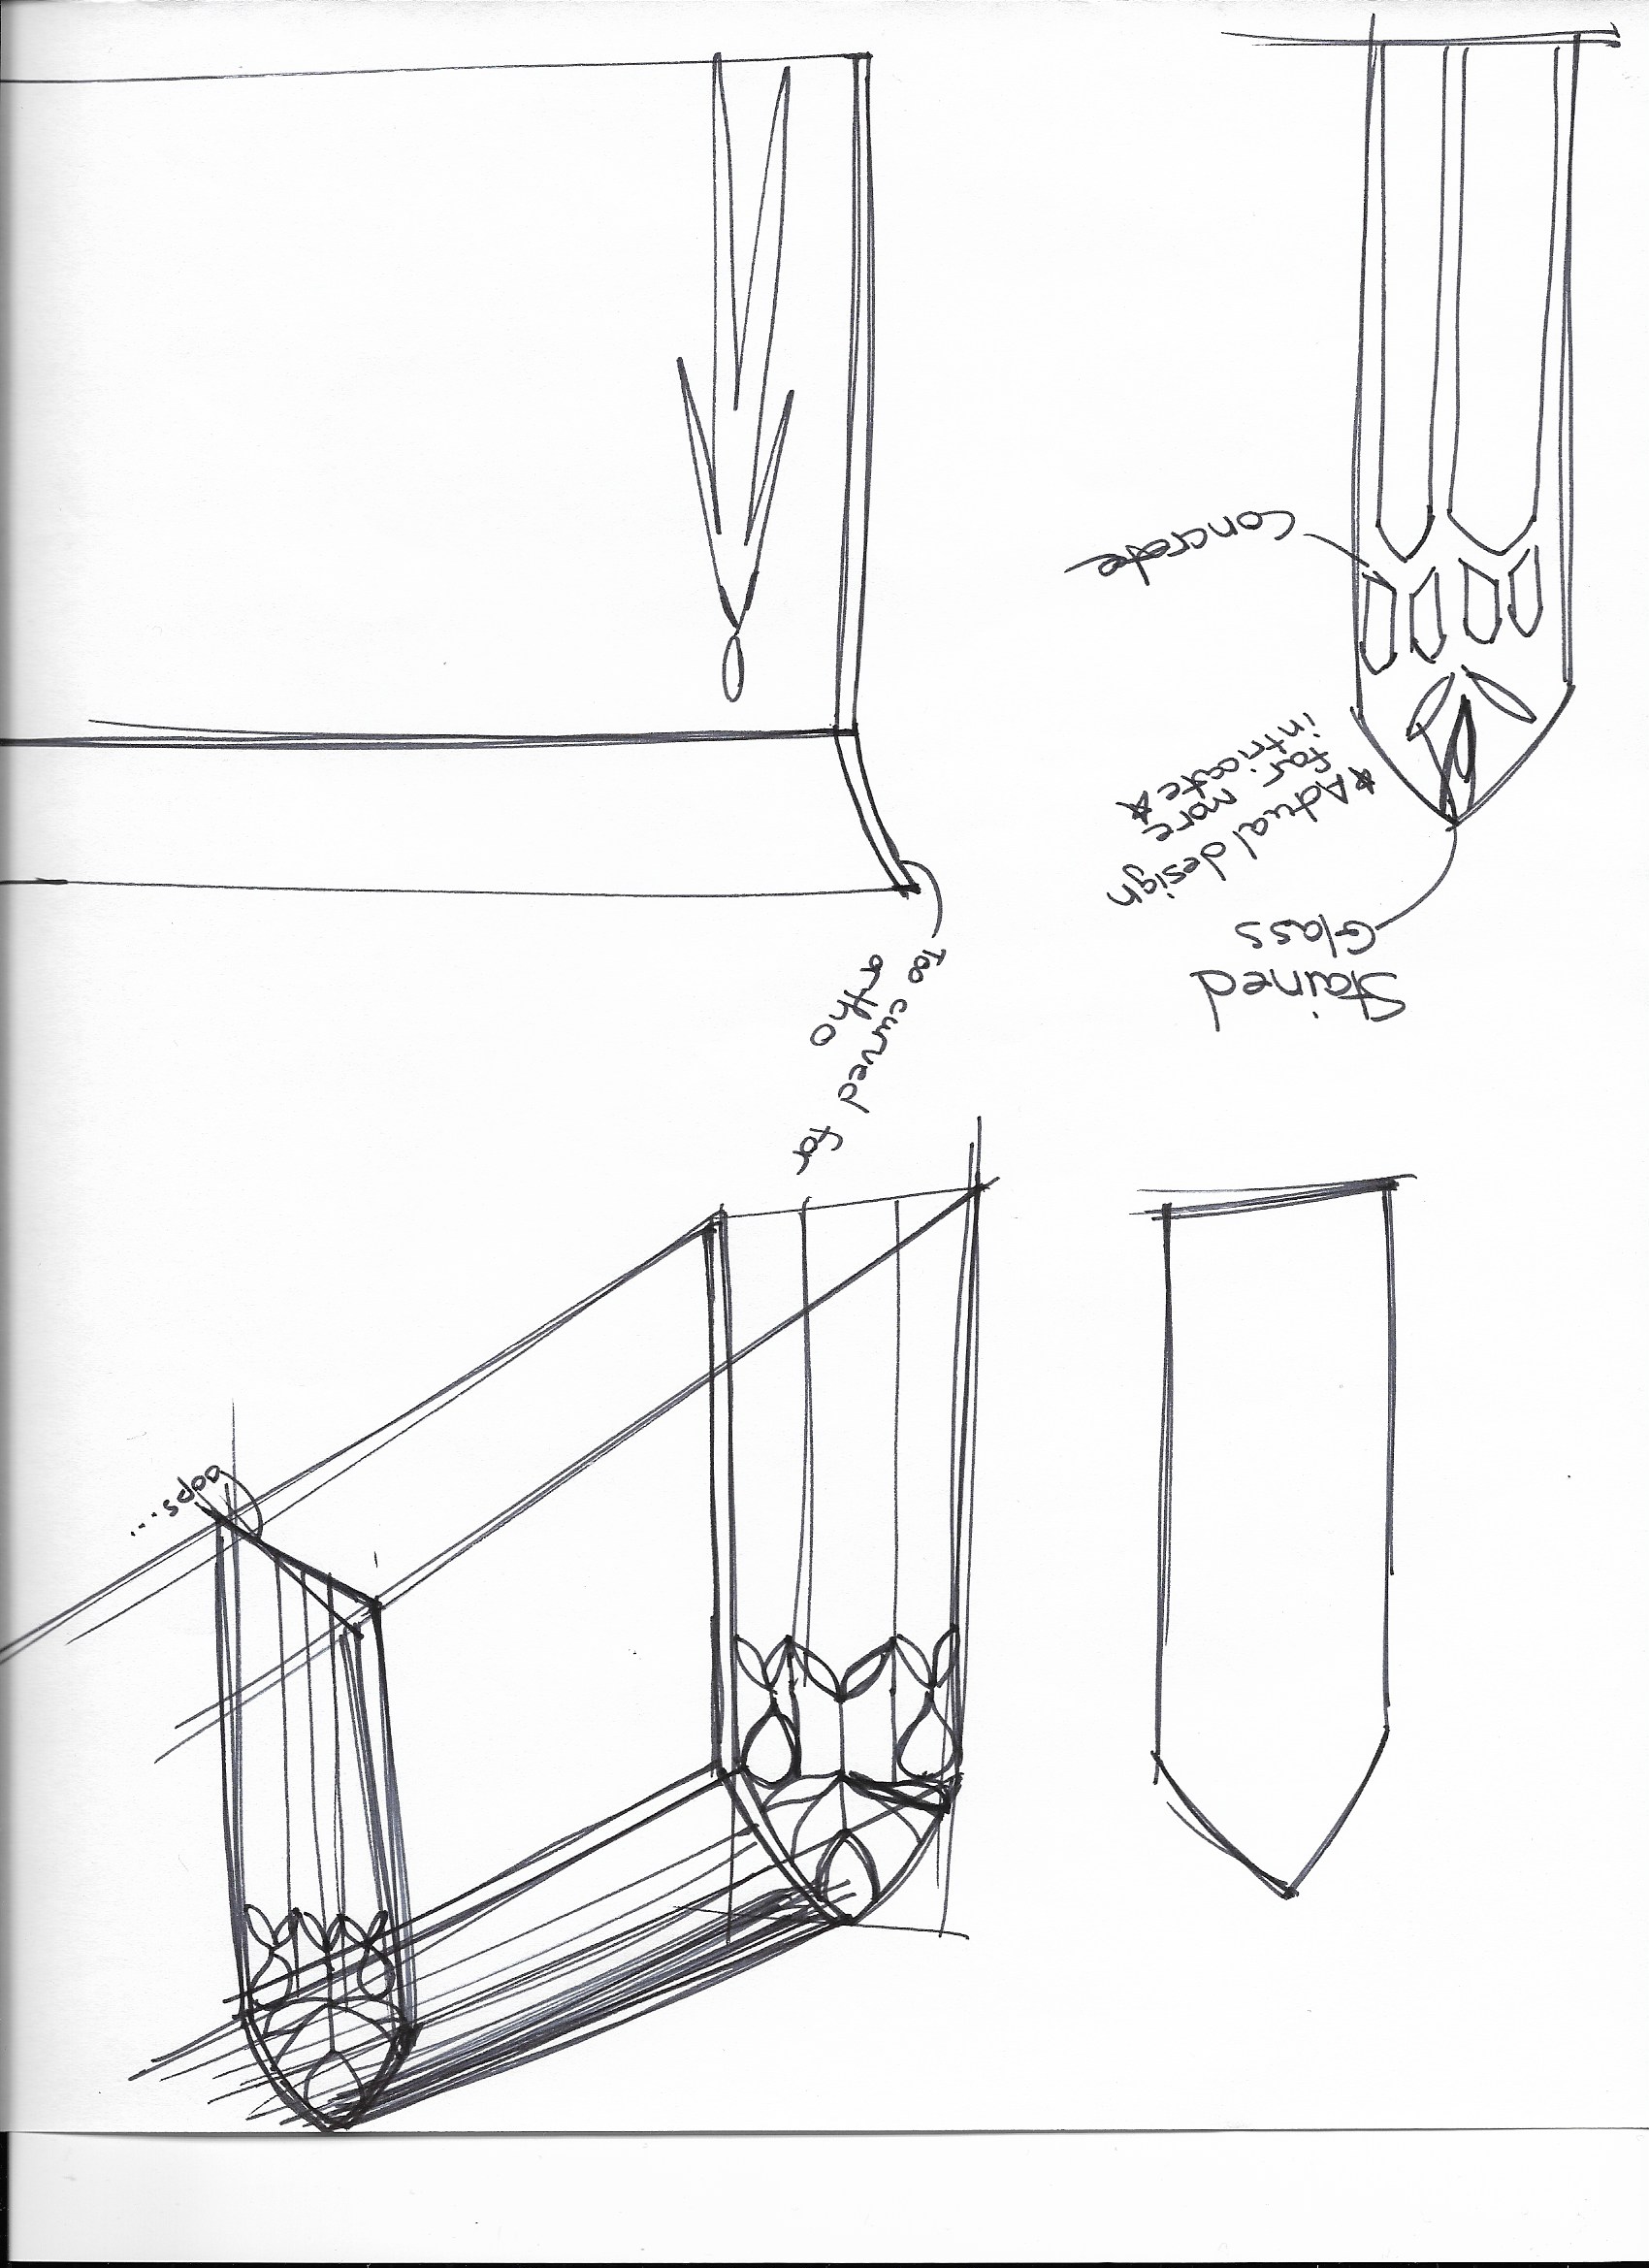 oops...
Too curved for
ortho
Stained
Glass
*Actual design
far more
intricate*
Concrete